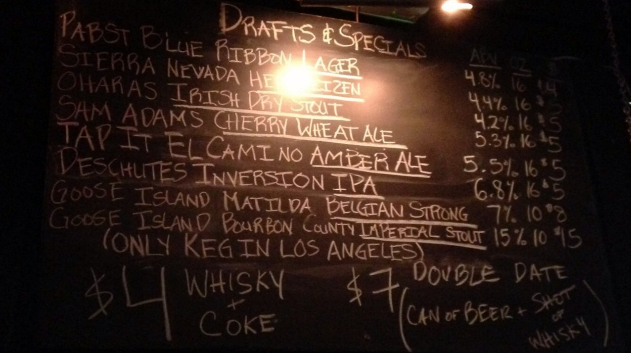 DRAFTS & SPECIALS
ABV OZ $
PABST BLUE RIBBON LAGER 4.8% 16 $4
SIERRA NEVADA HEFEWEIZEN 4.4% 16 $5
OHARAS IRISH DRY STOUT 4.2% 16 $5
SAM ADAMS CHERRY WHEAT ALE 5.3% 16 $5
TAP IT EL CAMINO AMBER ALE 5.5% 16 $5
DESCHUTES INVERSION IPA 6.8% 16 $5
GOOSE ISLAND MATILDA BELGIAN STRONG 7% 10 $8
GOOSE ISLAND BOURBON COUNTY IMPERIAL STOUT 15% 10 $15
(ONLY KEG IN LOS ANGELES)
$4 WHISKY + COKE
$7 DOUBLE DATE
(CAN OF BEER + SHOT OF WHISKY)